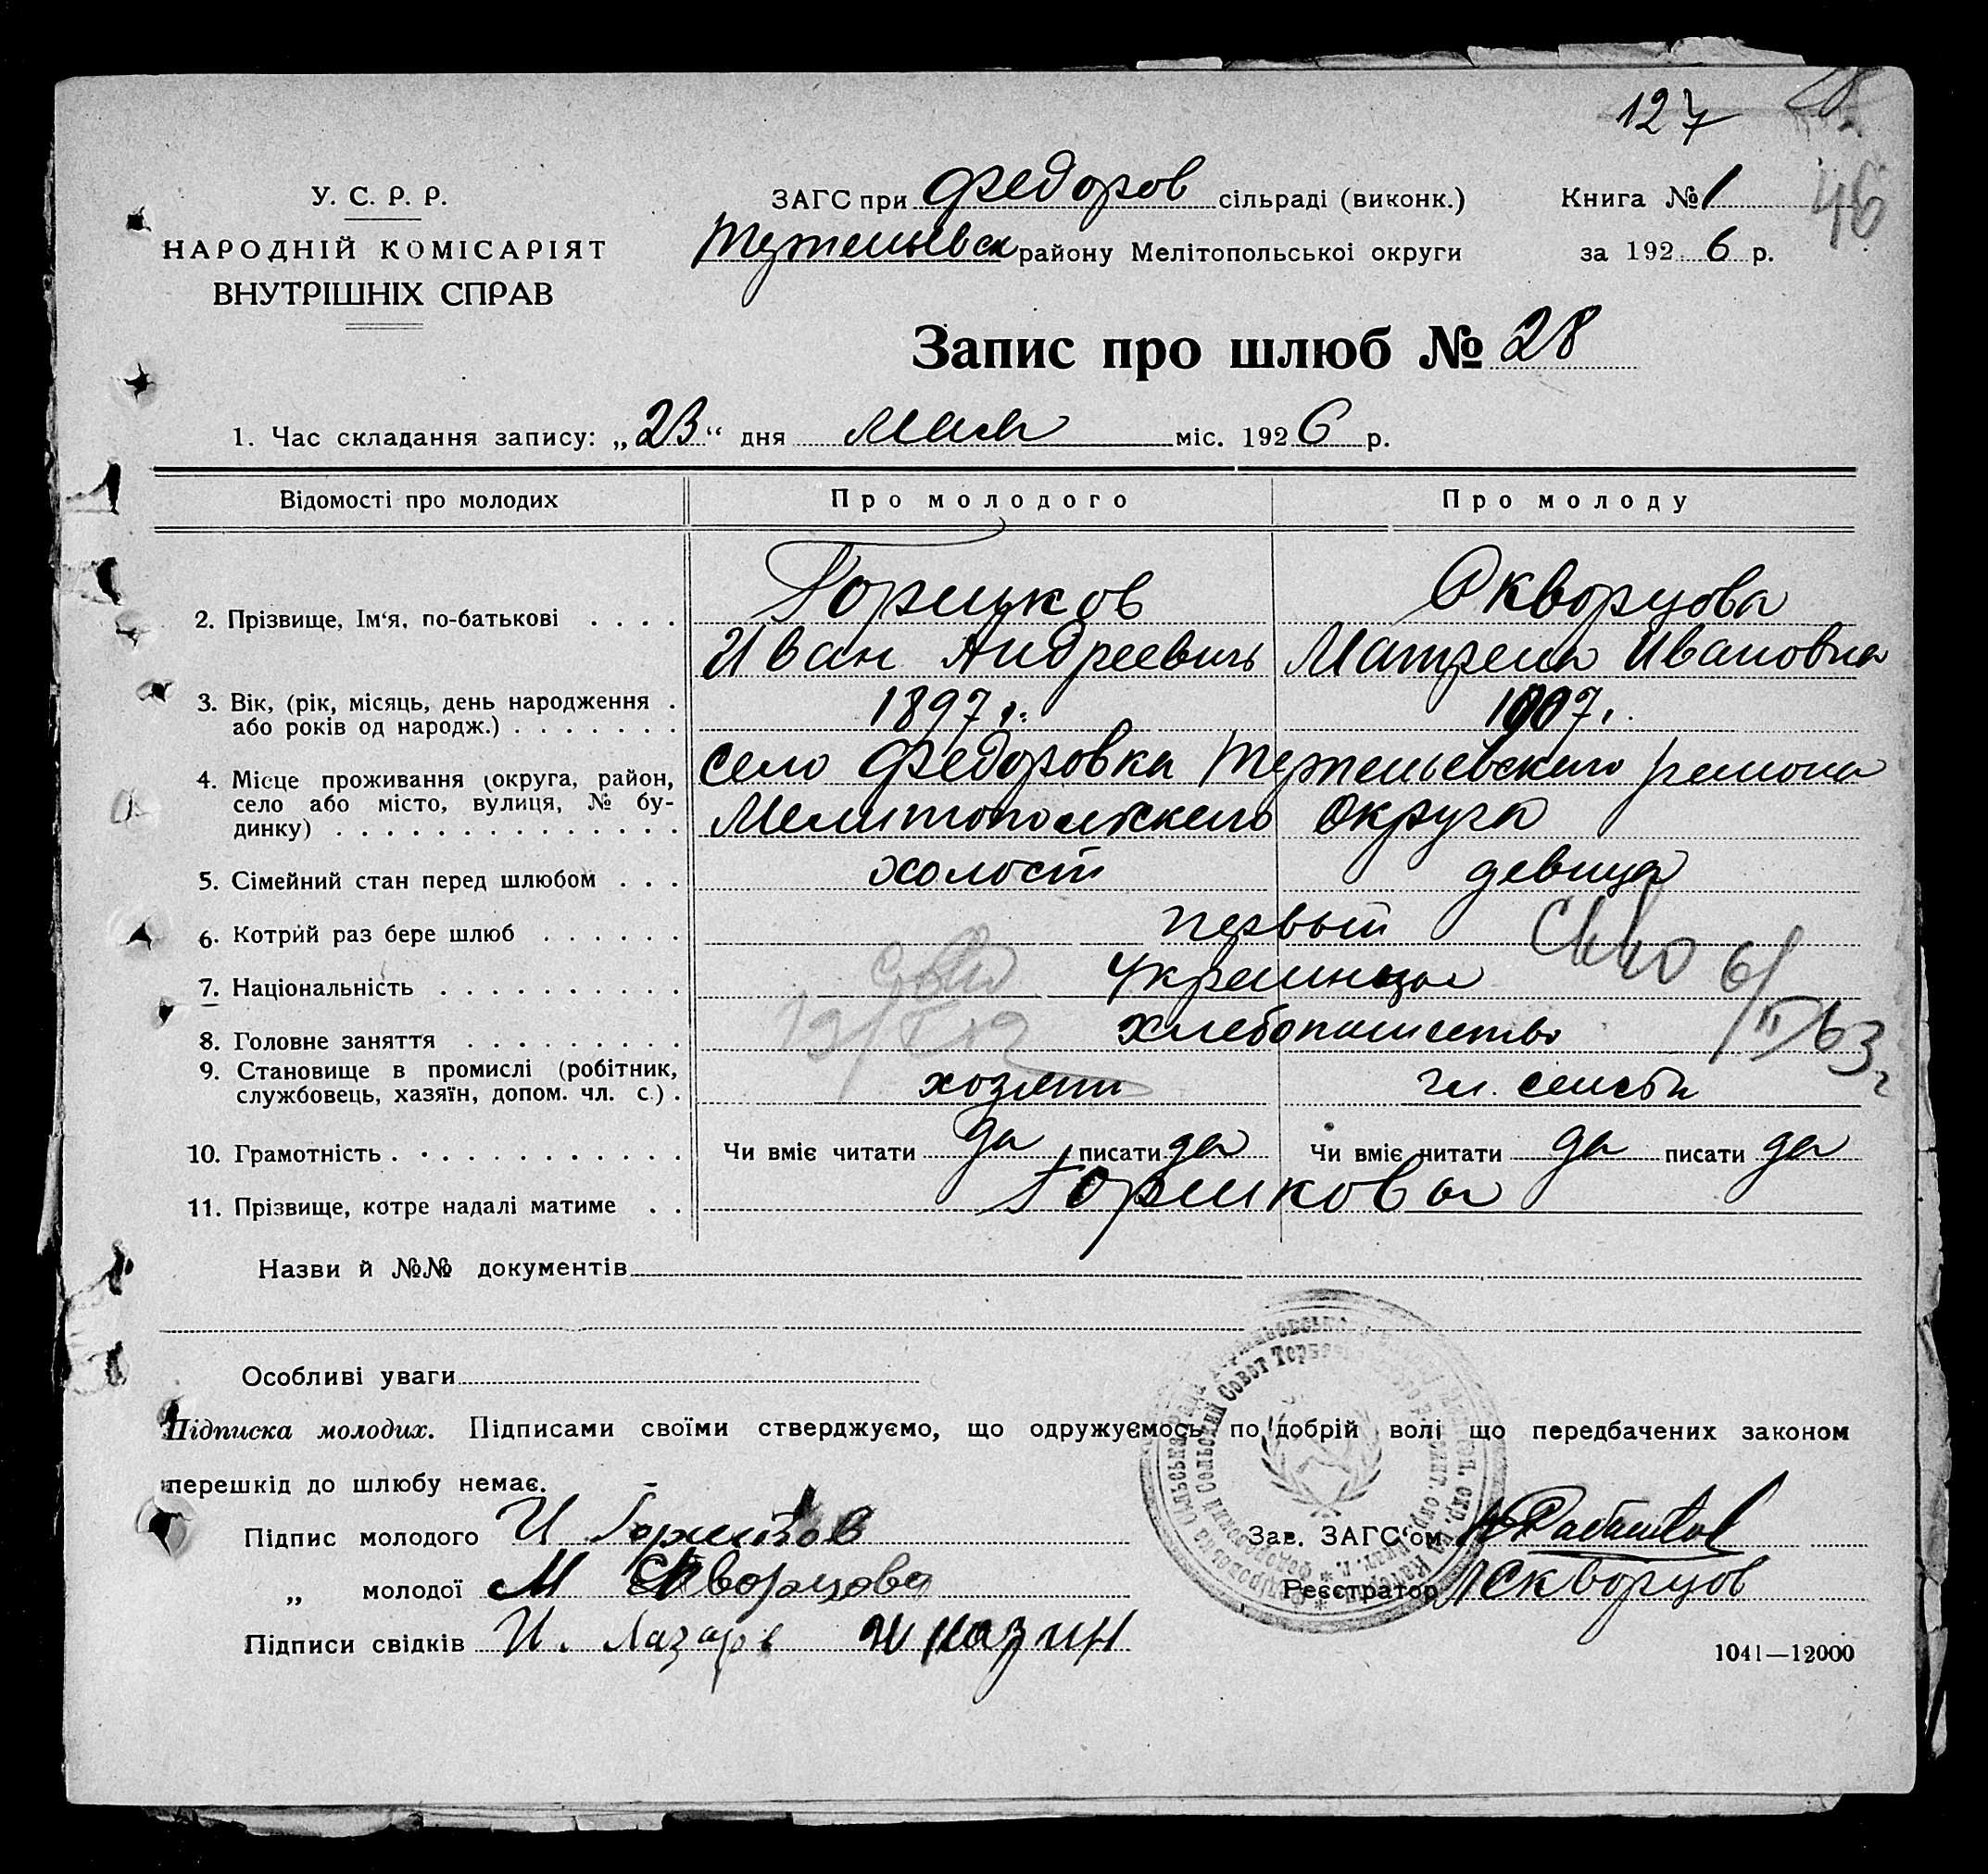 127
28
46
У. С. Р. Р.
НАРОДНІЙ КОМІСАРІЯТ
ВНУТРІШНІХ СПРАВ
ЗАГС при Федоров сільраді (виконк.)
району Мелітопольської округи
Книга № 1
за 1926 р.
Запис про шлюб № 28
1. Час складання запису: „23“ дня Мая міс. 1926 р.
Відомості про молодих
Про молодого
Про молоду
2. Прізвище, Ім‘я, по-батькові . . . .
Горшков
Иван Андреевичь
Скворцова
Матрена Ивановна
3. Вік, (рік, місяць, день народження .
або років од народж.) . . . . . . .
1897 г.
1907 г.
4. Місце проживання (округа, район,
село або місто, вулиця, № бу-
динку) . . . . . . . . . . . . . .
село Федоровка района
Мелитопольского Округа
5. Сімейний стан перед шлюбом . . .
холост
девица
6. Котрий раз бере шлюб . . . . . .
первый
7. Національність . . . . . . . . . .
Украинцы
8. Головне заняття . . . . . . . . .
хлебопашество
9. Становище в промислі (робітник,
службовець, хазяїн, допом. чл. с.) .
хозяин
чл. семьи
10. Грамотність . . . . . . . . . . . .
Чи вміє читати да писати да
Чи вміє читати да писати да
11. Прізвище, котре надалі матиме . .
Горшковы
Назви й №№ документів
Особливі уваги
Підписка молодих. Підписами своїми стверджуємо, що одружуємось по добрій волі що передбачених законом
перешкід до шлюбу немає.
Підпис молодого И Горшков
„ молодої М Скворцова
Підписи свідків И. Лазарев
Зав. ЗАГС‘ом
Реєстратор Скворцов
1041—12000